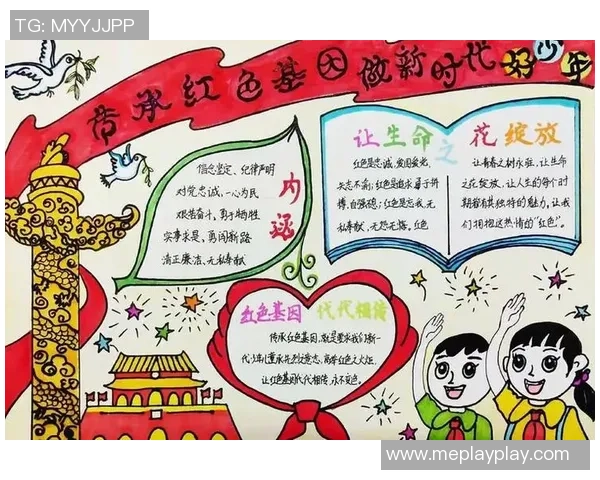 TG: MYYJJPP
传承红色基因做新时代好少年
内涵
信念坚定、纪律严明
对党忠诚、一心为民
艰苦奋斗、勇于牺牲
实事求是、勇闯新路
清正廉洁、无私奉献
让生命之花绽放
红色是忠诚,爱国爱党,
矢志不渝;红色是追求,勇于拼
搏,自强不息;红色是忘我,无
私奉献,无怨无悔,红色
让青春之树永驻,让生命
之花绽放,让人生的每个时
期都有其独特的魅力,让我
们拥抱这热情的“红色”。
红色基因 代代相传
传承红色基因,就是要求我们新一
代少年儿童永葆
高举红色之火炬,
让红色基因代代相传,永不变色。
www.meplayplay.com